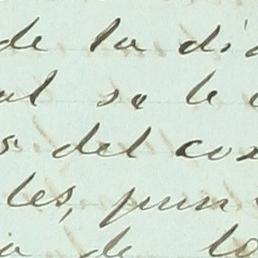 de la di
al se le
s del cor
les, pun
ia de lo